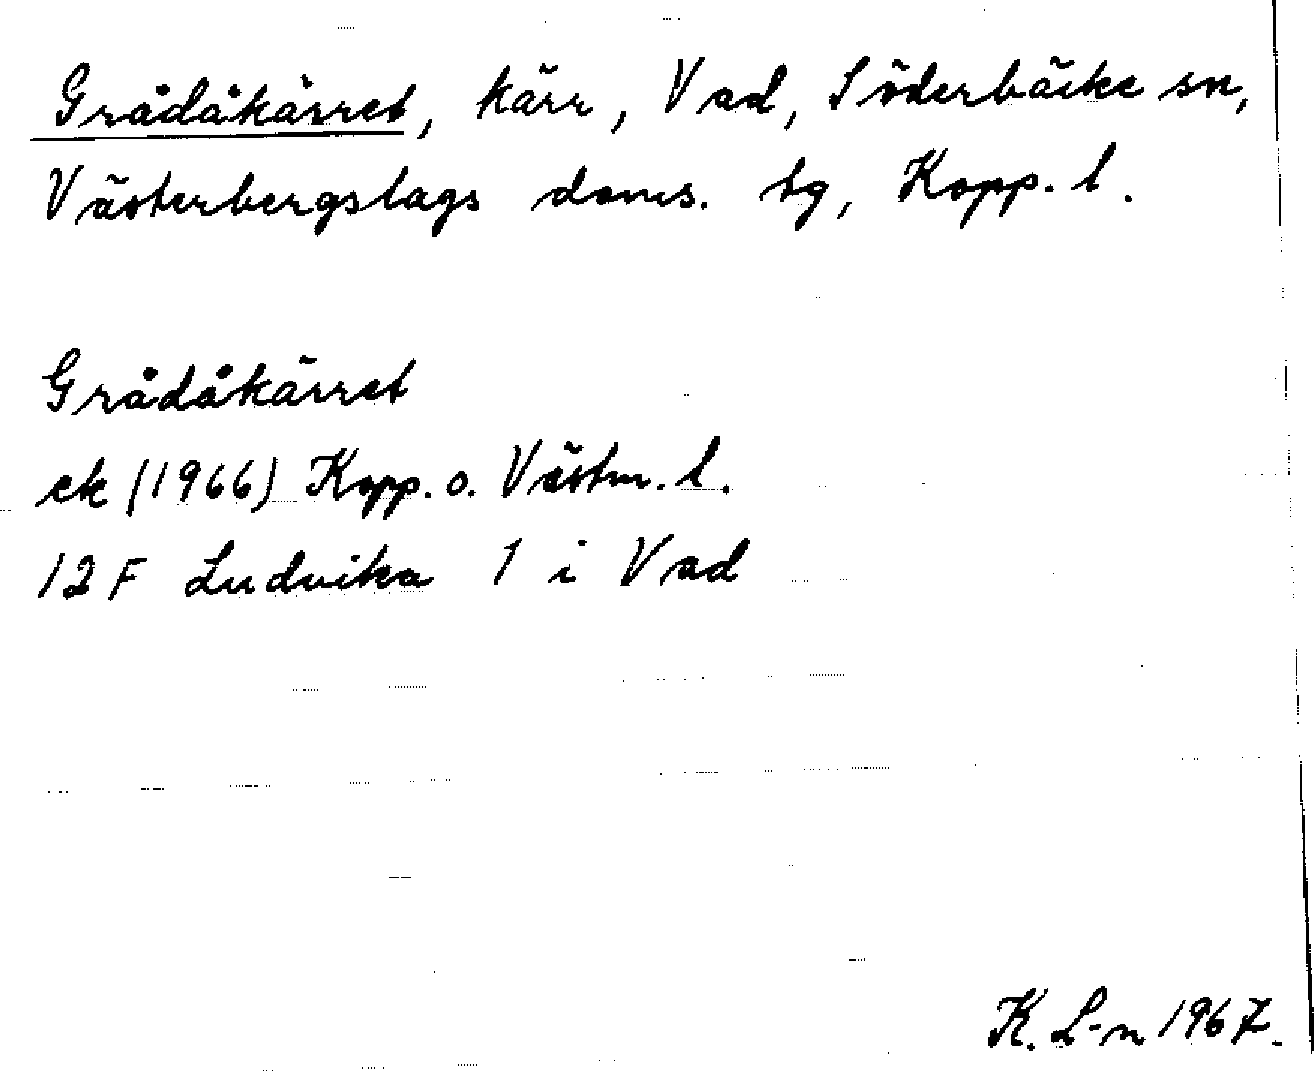 Grådåkärret, kärr, Vad, Söderbärke sn,
Västerbergslags doms. tg, Kopp. l.
Grådåkärret
ek (1966) Kopp. o. Västm. l.
12 F Ludvika 1 i Vad
K. L-n 1967.